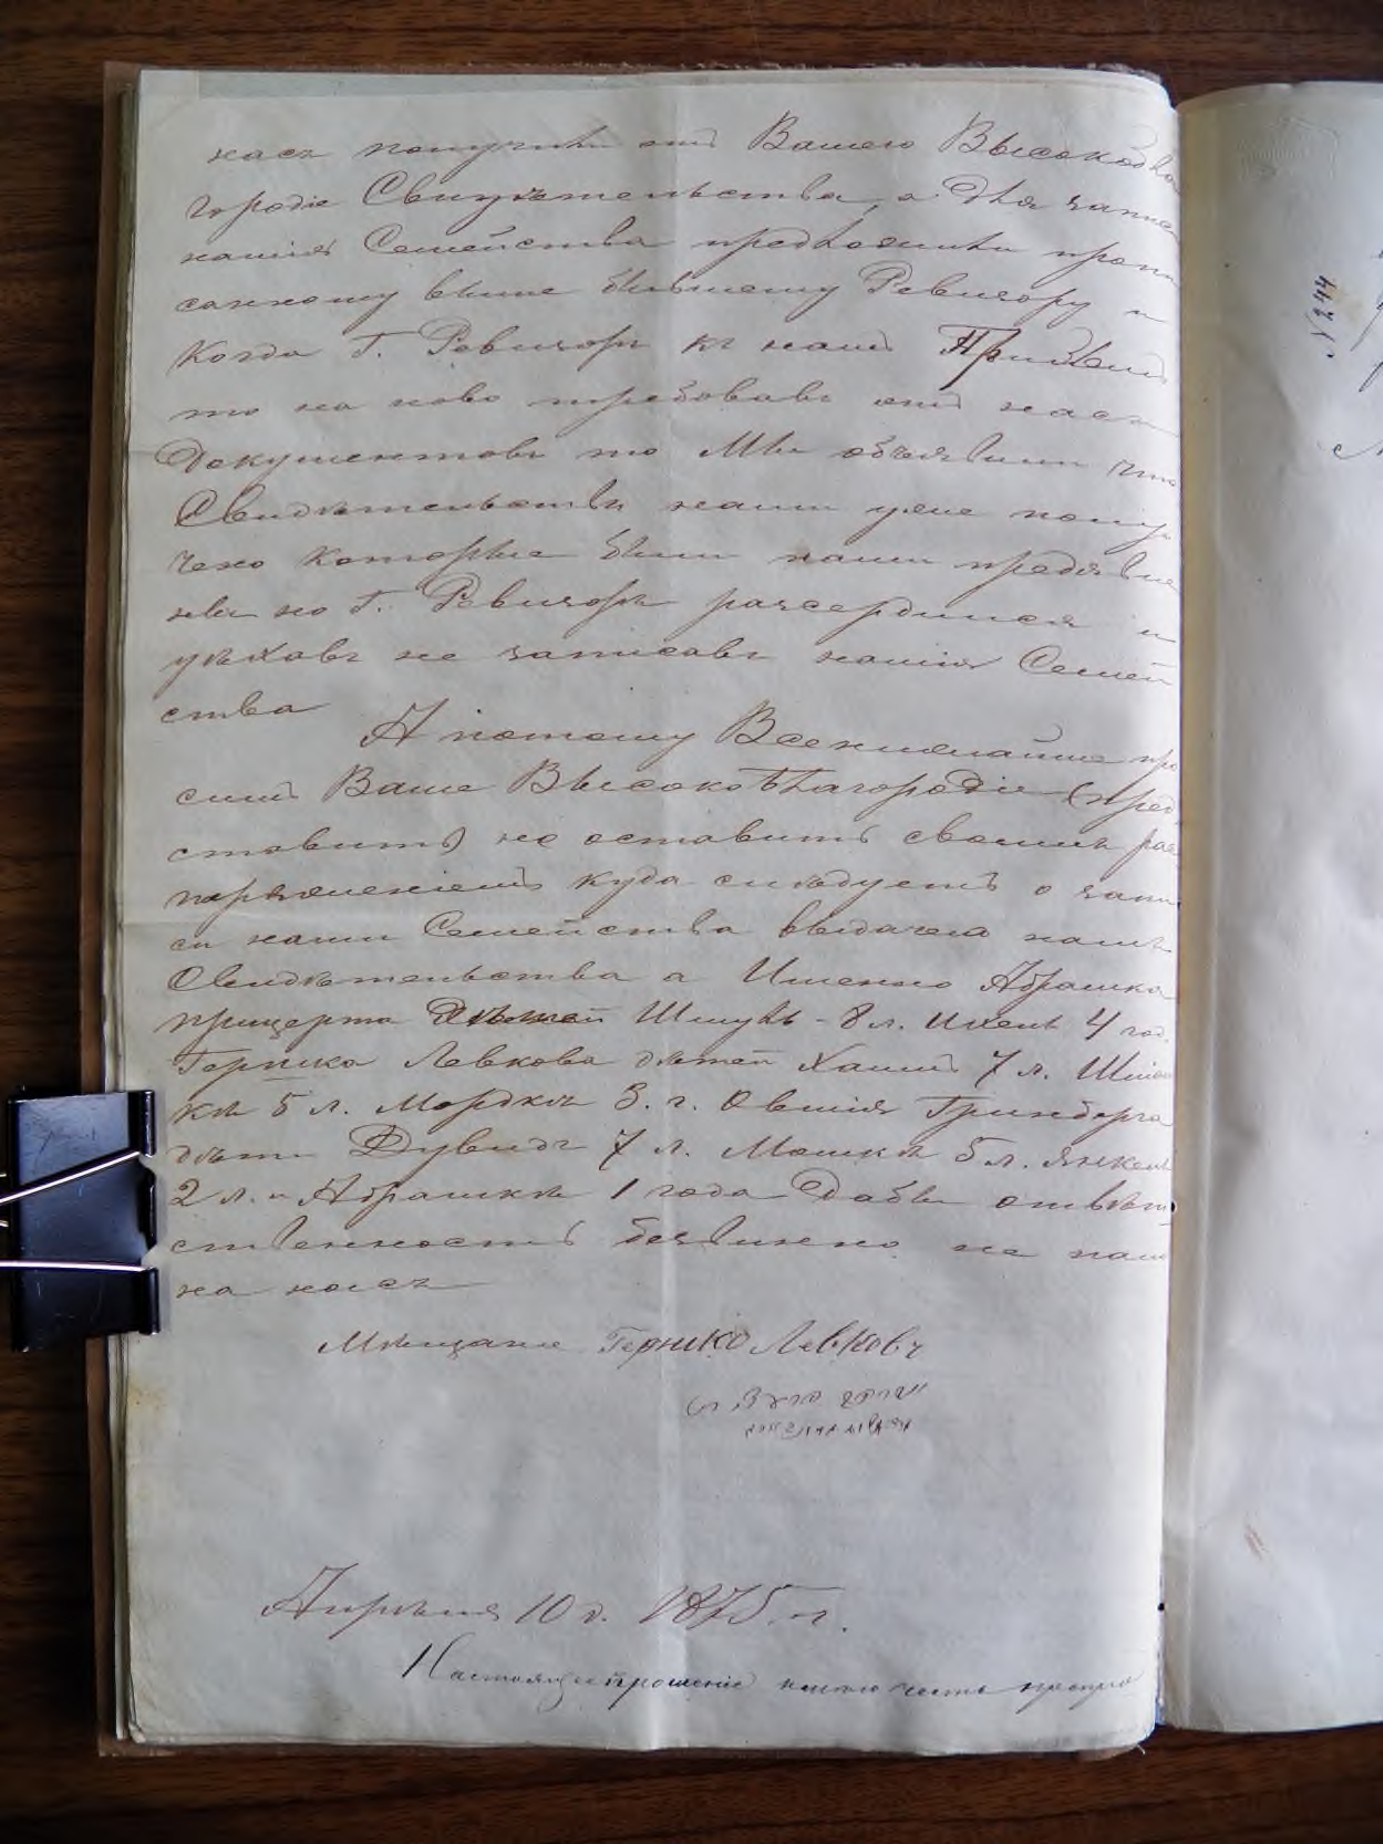 насъ получили отъ Вашего Высокобла
городіе Свидѣтельства, а для запис
нашія Семейства предложили пропи
санному выше бывшему Ревизору и
когда Г. Ревизоръ къ намъ Прибылъ
то на ново требовавъ отъ насъ
Документовъ то Мы объявили что
Свидѣтельствы наши уже полу
чено которые были нами предявле
ны но Г. Ревизоръ разсердился и
уѣхавъ не записавъ нашія Семей
ства
А потому Всенижайше про
симъ Ваше Высокоблагородіе (пред
ставить) не оставить своимъ рас
поряженіемъ куда слѣдуетъ о запи
си наши Семейства выдачею намъ
Свидѣтельства а Именно Абрашка
Детей Шмуль - 8 л. 4 год.
Гершко Левкова дѣтей Хаимъ 7 л. Шліом
къ 5 л. Мордкъ 3. г. Овшія Гринберга
дѣти Дувидъ 7 л. Мошкъ 5 л. Янкель
2 л. и Абрашкъ 1 года Дабы отвѣт
ственность безвинно не пала
на насъ
Мѣщане Гершко Левковъ
Апрѣля 10 д. 1875 г.
Настоящее прошеніе имѣю честь препро
N 244